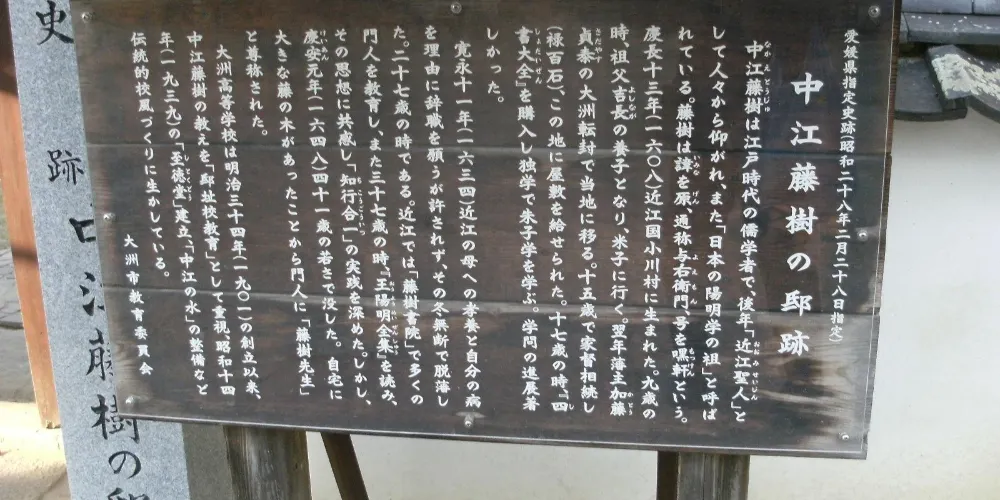 愛媛県指定史跡(昭和二十八年二月二十八日指定)
中江藤樹の邸跡
中江藤樹は江戸時代の儒学者で、後年「近江聖人」と
して人々から仰がれ、また「日本の陽明学の祖」と呼ば
れている。藤樹は諱を原、通称与右衛門、号を嘿軒という。
慶長十三年(一六〇八)近江国小川村に生まれた。九歳の
時、祖父吉長の養子となり、米子に行く。翌年藩主加藤
貞泰の大洲転封で当地に移る。十五歳で家督相続し
(禄百石)、この地に屋敷を給せられた。十七歳の時、『四
書大全』を購入し独学で朱子学を学ぶ。学問の進展著
しかった。
寛永十一年(一六三四)近江の母への孝養と自分の病
を理由に辞職を願うが許されず、その冬無断で脱藩し
た。二十七歳の時である。近江では「藤樹書院」で多くの
門人を教育し、また三十七歳の時、『王陽明全集』を読み、
その思想に共感し「知行合一」の実践を深めた。しかし、
慶安元年(一六四八)四十一歳の若さで没した。自宅に
大きな藤の木があったことから門人に「藤樹先生」
と尊称された。
大洲高等学校は明治三十四年(一九〇一)の創立以来、
中江藤樹の教えを「邸址校教育」として重視、昭和十四
年(一九三九)の「至徳堂」建立、「中江の水」の整備など
伝統的校風づくりに生かしている。
大洲市教育委員会
史跡 中江藤樹の邸